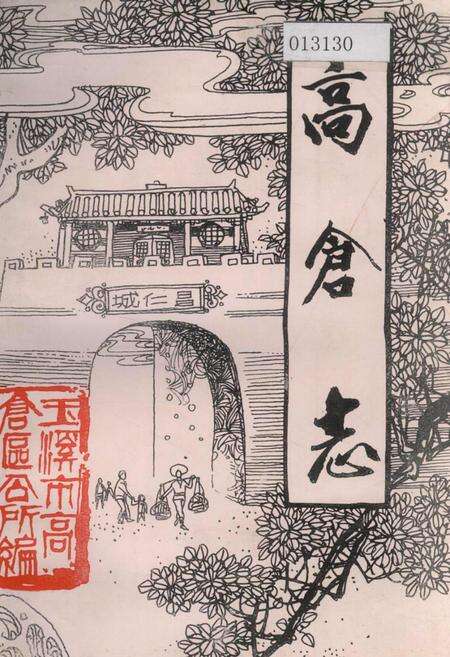 013130
高倉志
昌仁城
玉溪市高
倉區公所編